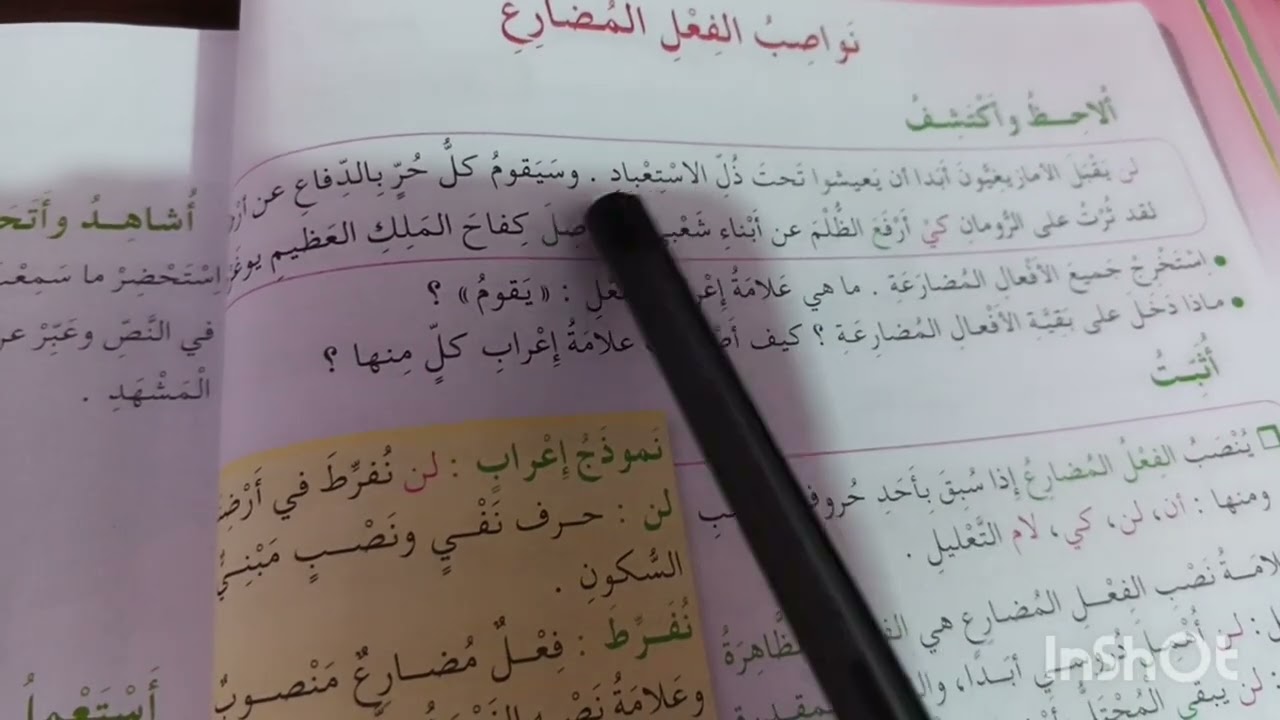 نَواصِبُ الفِعْلِ المُضارِعِ
أُلاحِظُ وأَكْتَشِفُ
لن يَقْبَلَ الأمازيغِيُّونَ أبَدا أن يَعيشوا تَحتَ ذُلِّ الاسْتِعْبادِ . وسَيَقومُ كلُّ حُرٍّ بِالدِّفاعِ عن
لقد ثُرْتُ على الرُّومانِ كيْ أرْفَعَ الظُّلْمَ عن أبْناءِ كِفاحَ المَلِكِ العَظيمِ
• اِسْتَخْرِجْ جَميعَ الأفْعالِ المُضارَعَةِ . ما هي عَلامَةُ : « يَقومُ » ؟
• ماذا دَخَلَ على بَقيَّةِ الأفْعالِ المُضارِعَةِ ؟ كيف عَلامَةُ إعْرابِ كلٍّ مِنها ؟
أُثبِتُ
يُنْصَبُ الفِعْلُ المُضارِعُ إذا سُبِقَ بِأحَدِ
ومنها : أن، لن، كي، لام التَّعْليلِ .
نَصْبِ الفِعْلِ المُضارِعِ هي
لن
لن يبقى
نَموذَجُ إعْرابٍ : لن نُفرِّطَ في
لن : حرف نَفْيٍ ونَصْبٍ مَبْنِيٌّ
السُّكونِ .
نُفَرِّطَ : فِعْلٌ مُضارِعٌ مَنْصوبٌ
وعَلامَةُ
أُشاهِدُ
اِسْتَحْضِرْ ما
في النَّصِّ وعَبِّرْ
الْمَشْهَدِ .
InShOt